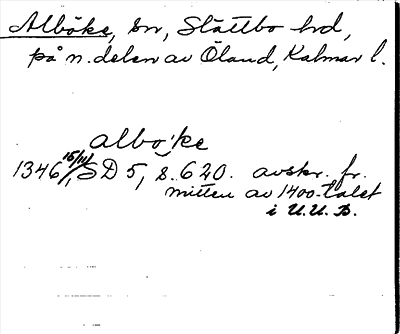 Alböke, sn, Slättbo hd,
på n. delen av Öland, Kalmar l.
albo̧ke
1346 15/11, SD 5, s. 620. avskr. fr.
mitten av 1400-talet
i U.U.B.